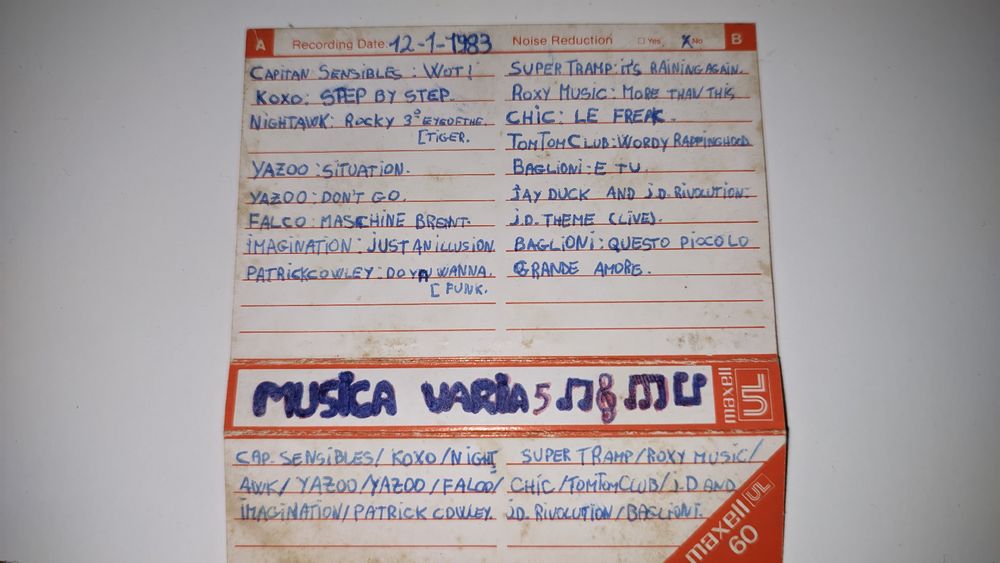 A Recording Date 12-1-1983 Noise Reduction Yes X No B
CAPITAN SENSIBLES : WOT!
KOXO: STEP BY STEP.
NIGHTAWK: ROCKY 3° EYEOFTHE
[TIGER.
YAZOO : SITUATION.
YAZOO : DON'T GO.
FALCO : MASCHINE BRENT.
IMAGINATION : JUST AN ILLUSION
PATRICKCOWLEY : DO YA WANNA.
[ FUNK.
SUPER TRAMP: IT'S RAINING AGAIN.
ROXY MUSIC: MORE THAN THIS
CHIC: LE FREAK.
TOMTOMCLUB: WORDY RAPPINGHOOD
BAGLIONI: E TU.
JAY DUCK AND J.D. RIVOLUTION:
J.D. THEME (LIVE).
BAGLIONI: QUESTO PICCOLO
GRANDE AMORE.
MUSICA VARIA 5
maxell UL
CAP. SENSIBLES / KOXO / NIGHT
AWK / YAZOO / YAZOO / FALCO /
IMAGINATION / PATRICK COWLEY
SUPER TRAMP / ROXY MUSIC /
CHIC / TOMTOMCLUB / J.D AND
J.D. RIVOLUTION / BAGLIONI.
maxell UL
60